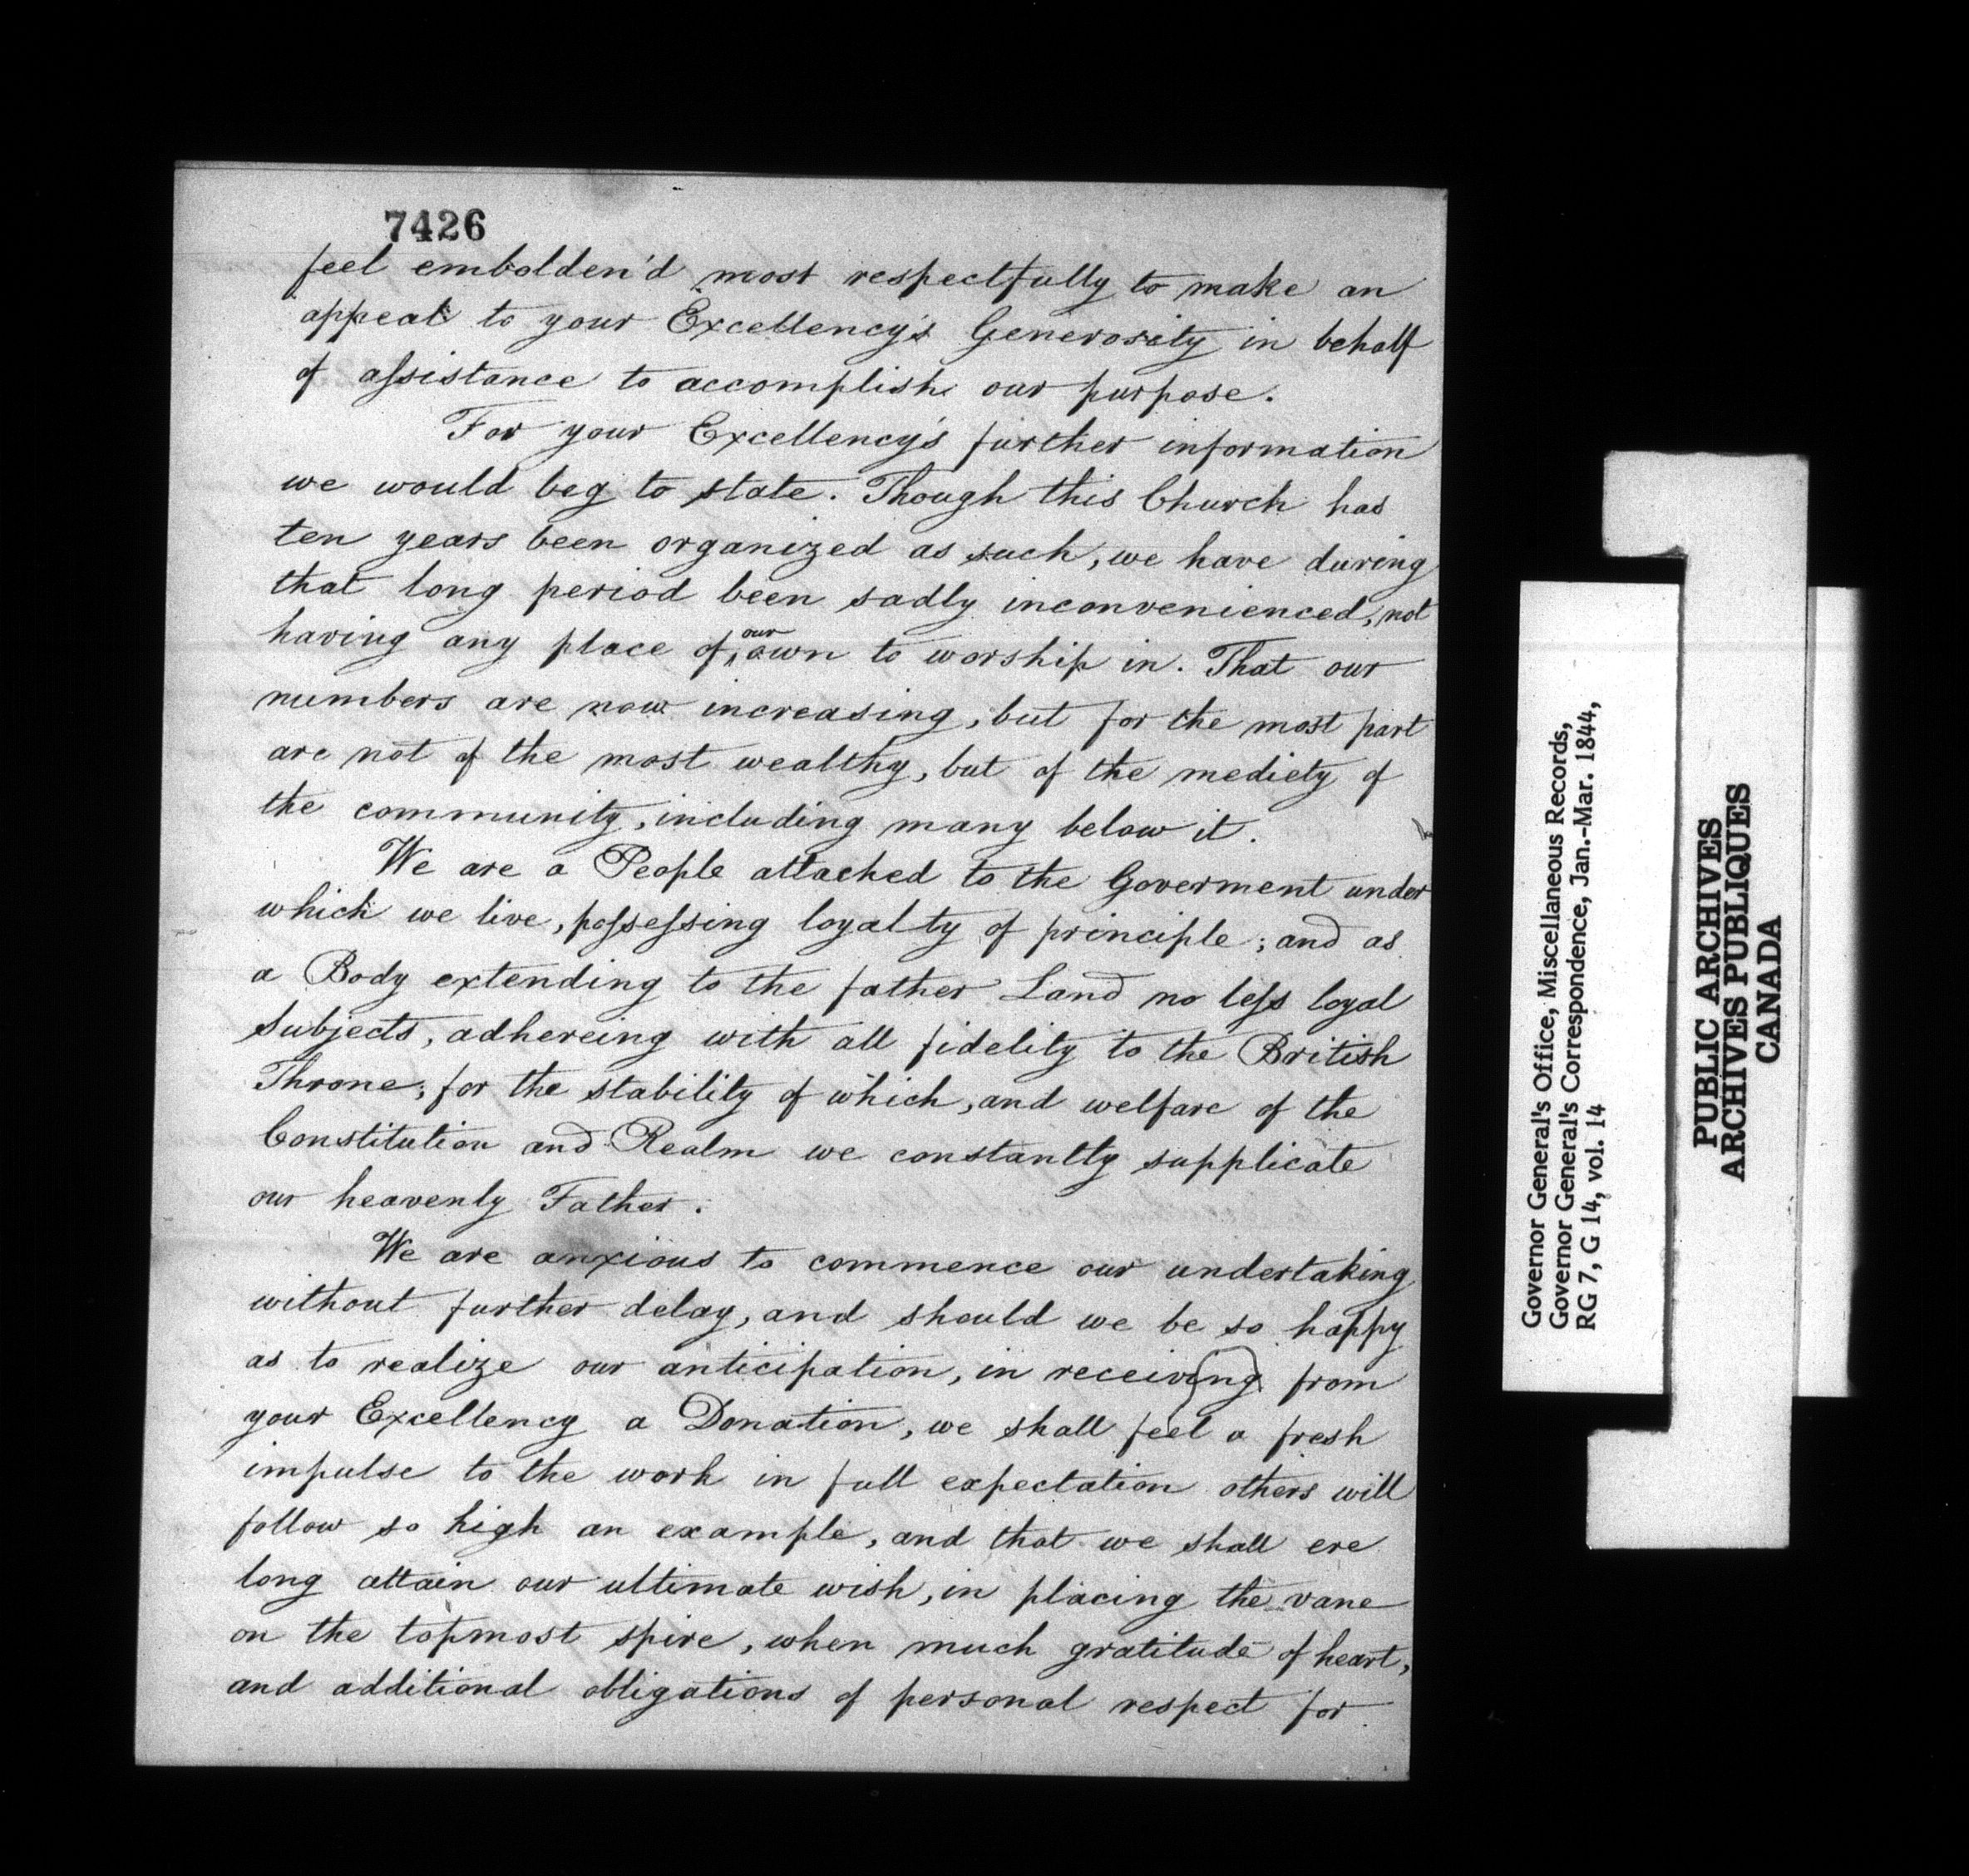 7426
feel embolden'd most respectfully to make an
appeal to your Excellency's Generosity in behalf
of assistance to accomplish our purpose.
For your Excellency's further information
we would beg to state. Though this Church has
ten years been organized as such, we have during
that long period been sadly inconvenienced, not
having any place of our own to worship in. That our
numbers are now increasing, but for the most part
are not of the most wealthy, but of the mediety of
the community, including many below it.
We are a People attached to the Goverment under
which we live, possessing loyalty of principle; and as
a Body extending to the father Land no less loyal
Subjects, adhereing with all fidelity to the British
Throne; for the stability of which, and welfare of the
Constitution and Realm we constantly supplicate
our heavenly Father.
We are anxious to commence our undertaking
without further delay, and should we be so happy
as to realize our anticipation, in receiving from
your Excellency a Donation, we shall feel a fresh
impulse to the work in full expectation others will
follow so high an example, and that we shall ere
long attain our ultimate wish, in placing the vane
on the topmost spire, when much gratitude of heart,
and additional obligations of personal respect for
Governor General's Office, Miscellaneous Records,
Governor General's Correspondence, Jan.-Mar. 1844,
RG 7, G 14, vol. 14
PUBLIC ARCHIVES
ARCHIVES PUBLIQUES
CANADA